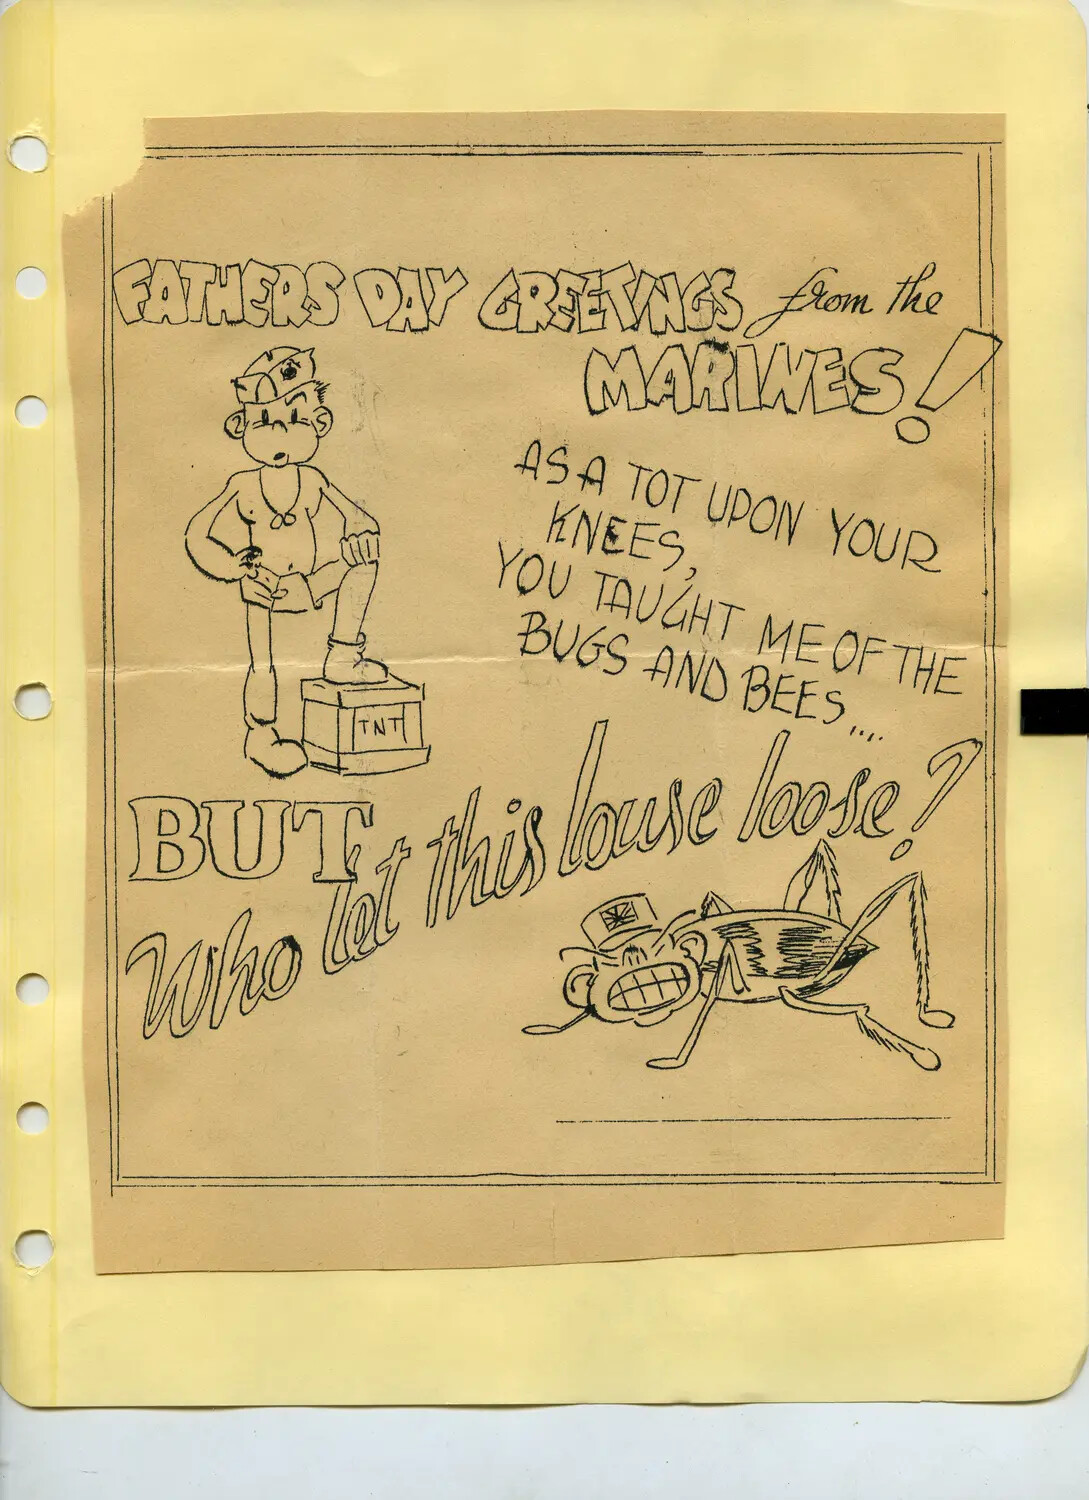 FATHERS DAY GREETINGS from the
MARINES!
AS A TOT UPON YOUR
KNEES,
YOU TAUGHT ME OF THE
BUGS AND BEES....
TNT
BUT
Who let this louse loose?